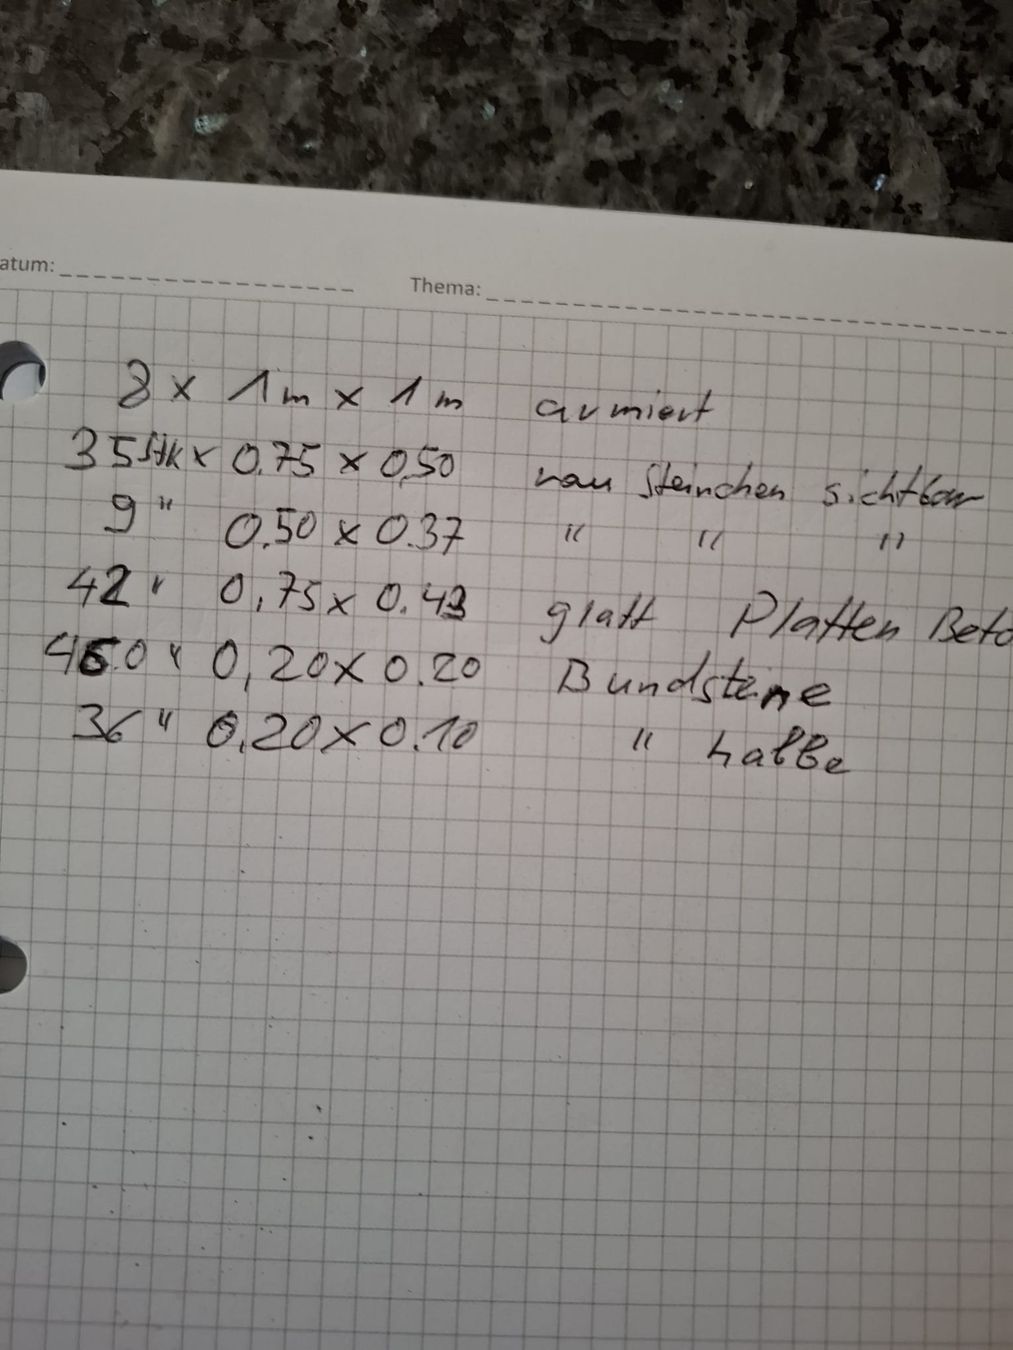 atum:
Thema:
8 x 1m x 1m armiert
35 Stk x 0.75 x 0,50 rau Steinchen sichtbar
9 " 0.50 x 0.37 " " "
42 " 0,75 x 0.43 glatt Platten Beto
460 " 0,20 x 0.20 Bundsteine
36 " 0,20 x 0.10 " halbe